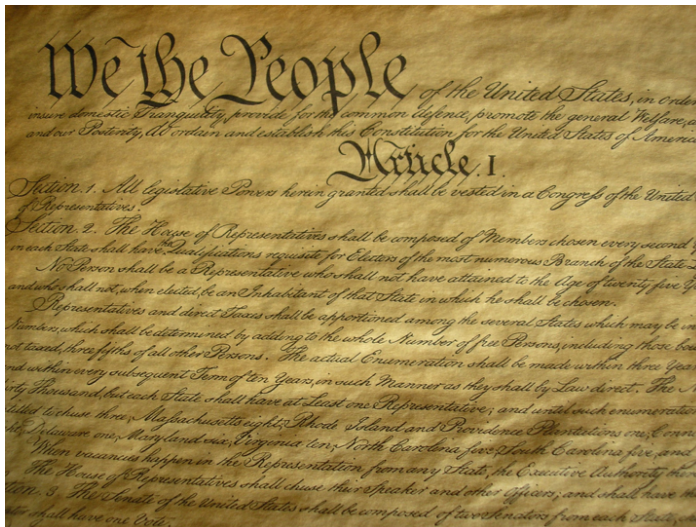 We the People of the United States, in order
insure domestic Tranquility, provide for the common defence, promote the general Welfare,
and our Posterity, do ordain and establish this Constitution for the United States of America
Article. I.
Section. 1. All legislative Powers herein granted shall be vested in a Congress of the United
of Representatives.
Section. 2. The House of Representatives shall be composed of Members chosen every second
in each State shall have the Qualifications requisite for Electors of the most numerous Branch of the State
No Person shall be a Representative who shall not have attained to the Age of twenty five
and who shall not, when elected, be an Inhabitant of that State in which he shall be chosen.
Representatives and direct Taxes shall be apportioned among the several States which may be
Numbers, which shall be determined by adding to the whole Number of free Persons, including those
not taxed, three fifths of all other Persons. The actual Enumeration shall be made within three
and within every subsequent Term of ten Years, in such Manner as they shall by Law direct. The
Thousand, but each State shall have at Least one Representative; and until such enumeration
to chuse three, Massachusetts eight, Rhode Island and Providence Plantations one,
Delaware one, Maryland six, Virginia ten, North Carolina five, South Carolina five, and
When vacancies happen in the Representation from any State, the Executive Authority
The House of Representatives shall chuse their Speaker and other Officers; and shall have
3. The Senate of the United States shall be composed of two Senators from each State,
shall have one Vote.